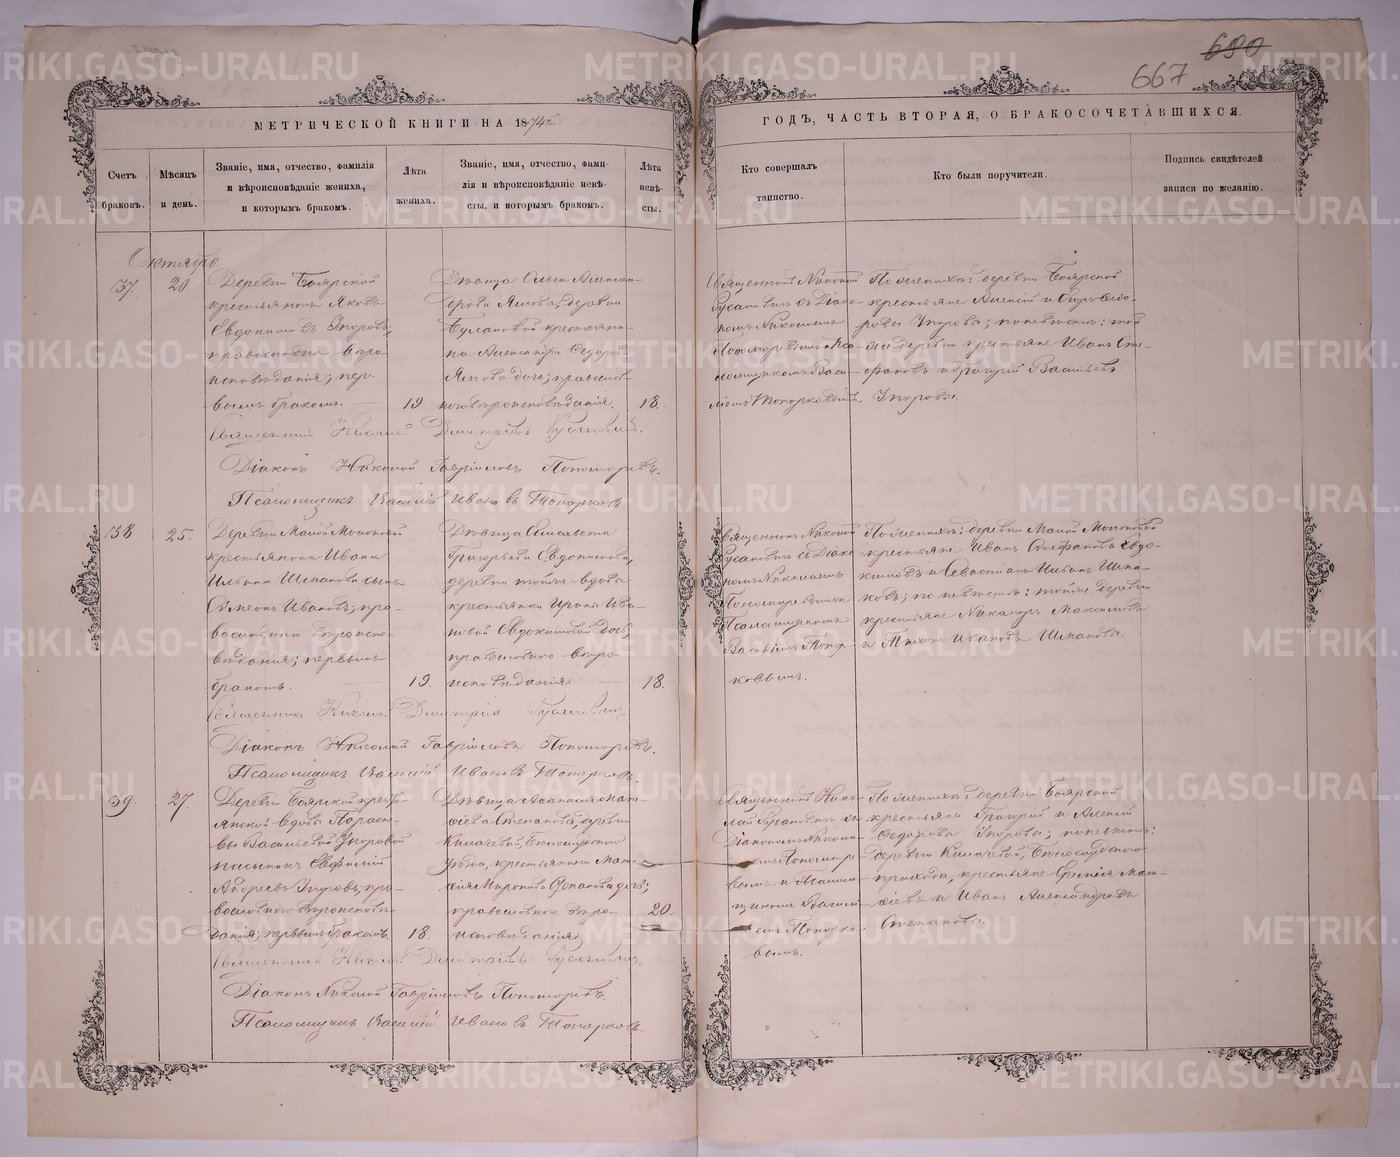 680
667
МЕТРИЧЕСКОЙ КНИГИ НА 1874й
ГОДЪ, ЧАСТЬ ВТОРАЯ, О БРАКОСОЧЕТАВШИХСЯ.
Счетъ
браковъ.
Мѣсяцъ
и день.
Званіе, имя, отчество, фамилія
и вѣроисповѣданіе жениха,
и которымъ бракомъ.
Лѣта
жениха.
Званіе, имя, отчество, фами-
лія и вѣроисповѣданіе невѣ-
сты, и которымъ бракомъ.
Лѣта
невѣ-
сты.
Кто совершалъ
таинство.
Кто были поручители.
Подпись свидѣтелей
записи по желанію.
Октябрь.
37.
20
Деревни Боярской
крестьянинъ Яковъ
Евдокимовъ Упоровъ;
православнаго вѣро-
исповѣданія; пер-
вымъ бракомъ.
19
Дѣвица Ольга Алексан-
дрова Ямова, деревни
Булановой крестьяни-
на Александра Ѳедорова
Ямова дочь; православ-
наго вѣроисповѣданія.
18.
Священникъ Николай
Русановичъ съ Діако-
номъ Николаемъ
Пономаревымъ и Пса-
ломщикомъ Васи-
ліемъ Топорковымъ.
По женихѣ: деревни Боярской
крестьяне Алексій и Ѳедо-
ровы Упоровы; по невѣстѣ: той
же деревни крестьяне Иванъ Сте-
фановъ и Григорій Васильевъ
Упоровы.
Священникъ Николай Дмитріевъ Русановичъ.
Діаконъ Николай Гавріиловъ Пономаревъ.
Псаломщикъ Василій Ивановъ Топорковъ
38
25.
Деревни Малой
крестьянина Ивана
Ильина Шпакова сынъ
Симеонъ Ивановъ; пра-
вославнаго вѣроиспо-
вѣданія; первымъ
бракомъ.
19.
Дѣвица Елисавета
Григорьева Евдокимова,
деревни тойже вдовы
крестьянки Ирины Ива-
новой Евдокимовой дочь
православнаго вѣро-
исповѣданія
18.
Священникъ Николай
Русановичъ съ Діако-
номъ Николаемъ
Пономаревымъ и
Псаломщикомъ
Васильемъ Топор-
ковымъ.
По женихѣ: деревни Малой
крестьяне Иванъ Стефановъ Евдо-
кимовъ и Севастіанъ Ильинъ Шпа-
ковъ; по невѣстѣ: тойже деревни
крестьяне Никандръ Максимовъ
и Тихонъ Ивановъ Шпаковы.
Священникъ Николай Дмитріевъ Русановичъ
Діаконъ Николай Гавріиловъ Пономаревъ.
Псаломщикъ Василій Ивановъ Топорковъ.
39.
27.
Деревни Боярской кресть-
янской вдовы Парас-
кевы Васильевой Упоровой
пасынокъ Евфимій
Андреевъ Упоровъ; пра-
вославнаго вѣроисповѣ-
данія; первымъ бракомъ.
18.
Дѣвица Аѳанасія Мат-
ѳіева Степанова, деревни
Килачевой,
крестьянина Мат-
ѳія Миронова Степанова дочь;
православнаго вѣро-
исповѣданія
20.
Священникъ Нико-
лай Русановичъ съ
Діакономъ Никола-
емъ Пономаре-
вымъ и Псалом-
щикомъ Васили-
емъ Топорко-
вымъ.
По женихѣ: деревни Боярской
крестьяне Григорій и Алексій
Ѳедоровы Упоровы; по невѣстѣ:
деревни Килачевой,
прихода, крестьяне Еремія Мат-
ѳіевъ и Иванъ Александровъ
Степановы.
Священникъ Николай Дмитріевъ Русановичъ.
Діаконъ Николай Гавріиловъ Пономаревъ.
Псаломщикъ Василій Ивановъ Топорковъ
METRIKI.GASO-URAL.RU